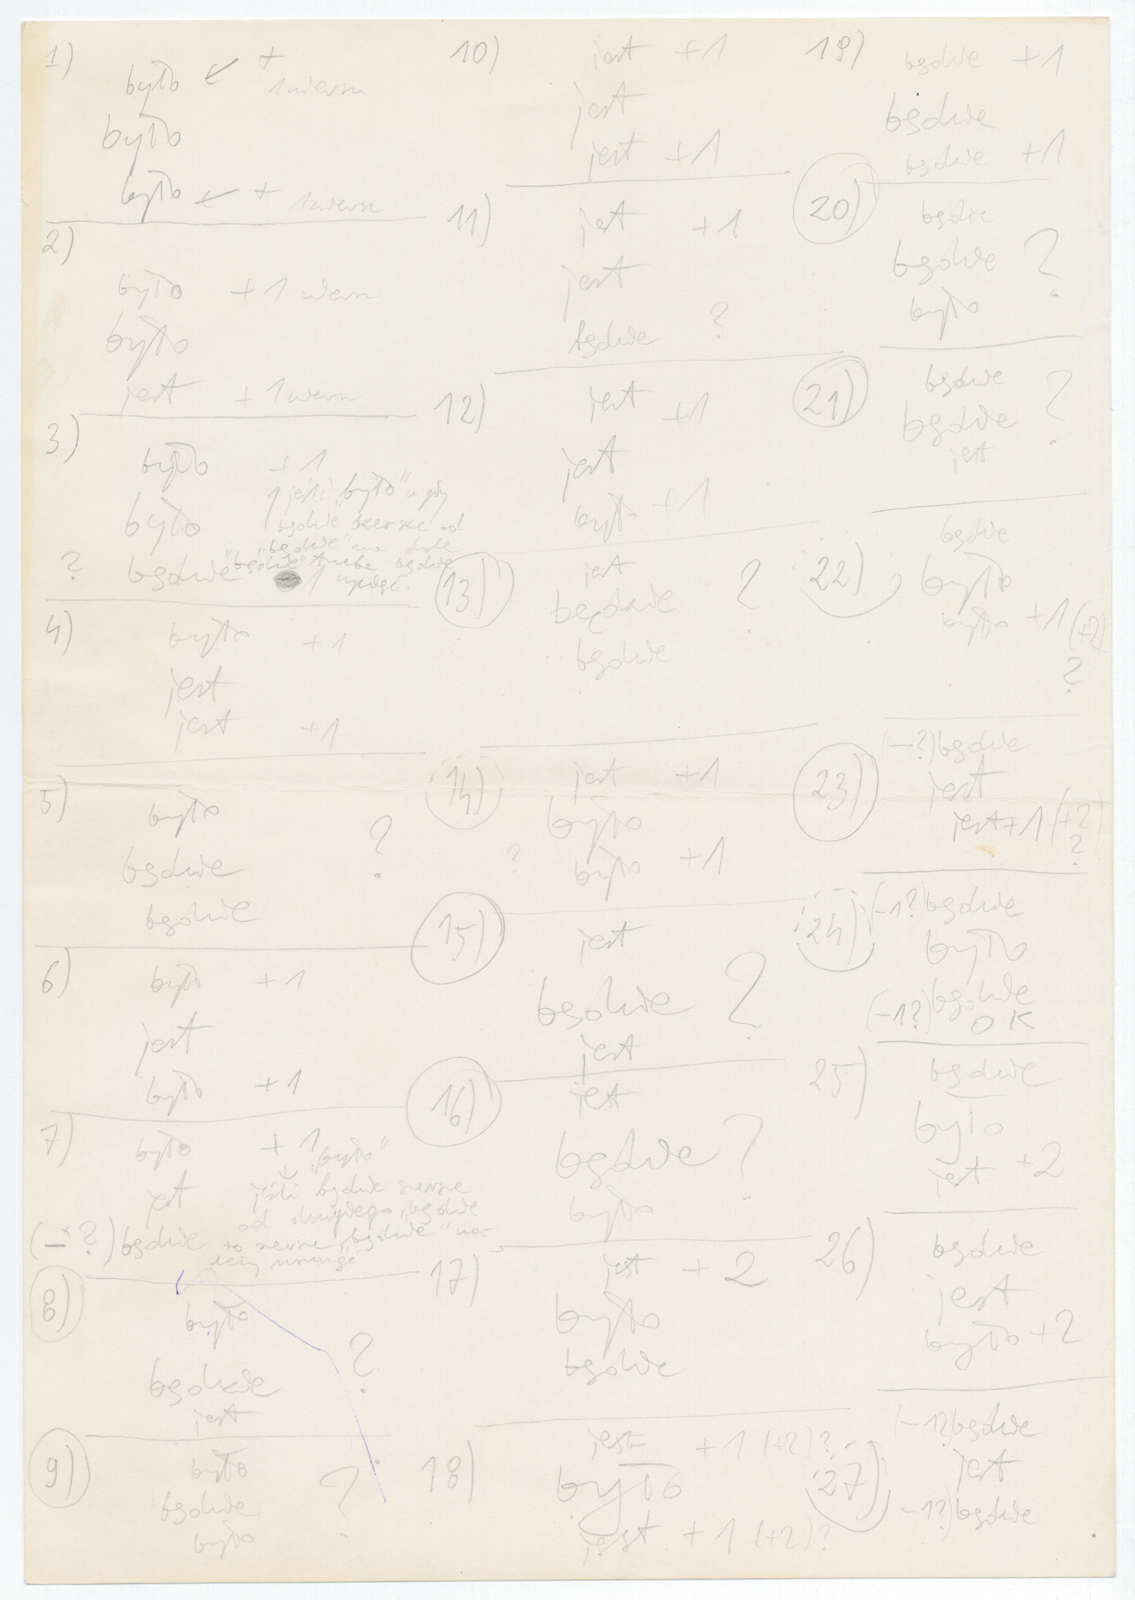 1)
było ← +
1 wiersz
było
było ← + 1 wiersz
2)
było +1 wiersz
było
jest +1 wiersz
3)
było +1
1 jeśli „było" u góry
było
będzie szersze od
„będzie" na dole
? będzie "będzie" trzeba będzie
1
4)
było +1
jest
jest +1
5)
było
będzie ?
będzie
6)
było +1
jest
było +1
7)
było +1
„było"
jest jeśli będzie szersze
od drugiego „będzie
(-?) będzie to „będzie"
usunąć
8)
było
będzie ?
jest
9)
było
będzie ?
było
10)
jest +1
jest
jest +1
11)
jest +1
jest
będzie ?
12)
jest +1
jest
było +1
13)
jest
będzie ?
będzie
14)
jest +1
było
? było +1
15)
jest
będzie ?
jest
16)
jest
będzie ?
było
17)
jest +2
było
będzie
18)
jest +1 (+2)?
było
jest +1 (+2)?
19)
będzie +1
będzie
będzie +1
20)
będzie
będzie ?
było
21)
będzie
będzie ?
jest
22)
będzie
było
było +1 (+2)
?
23)
(-?) będzie
jest
jest +1 (+2)
?
24)
(-1?) będzie
było
(-1?) będzie
OK
25)
będzie
było
jest +2
26)
będzie
jest
było +2
27)
(-1?) będzie
jest
-1?) będzie